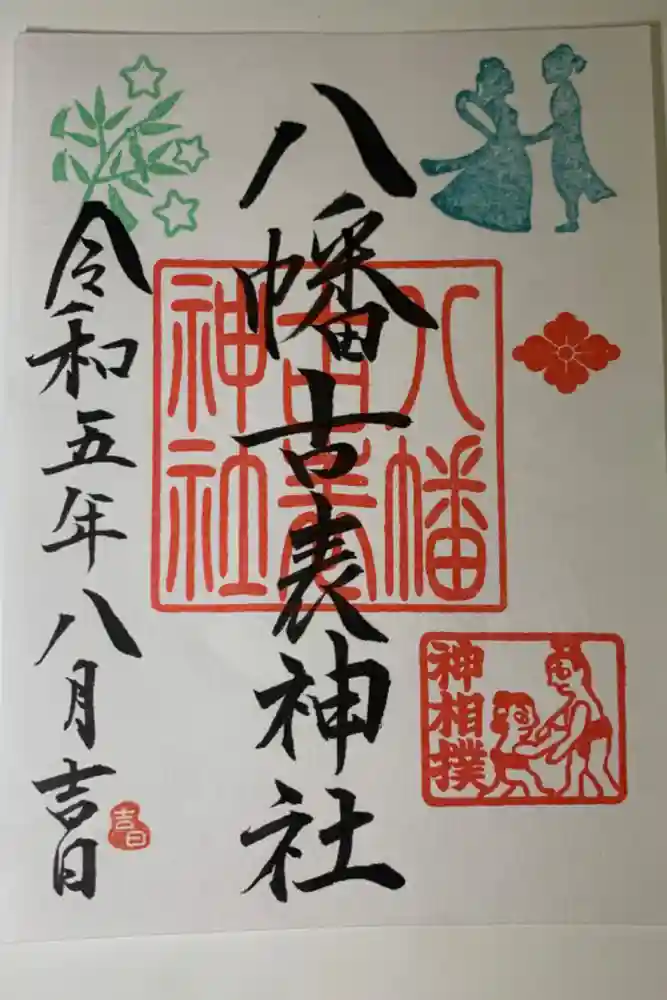 八幡古表神社
令和五年八月吉日
八幡
古表
神社
神相撲
吉日